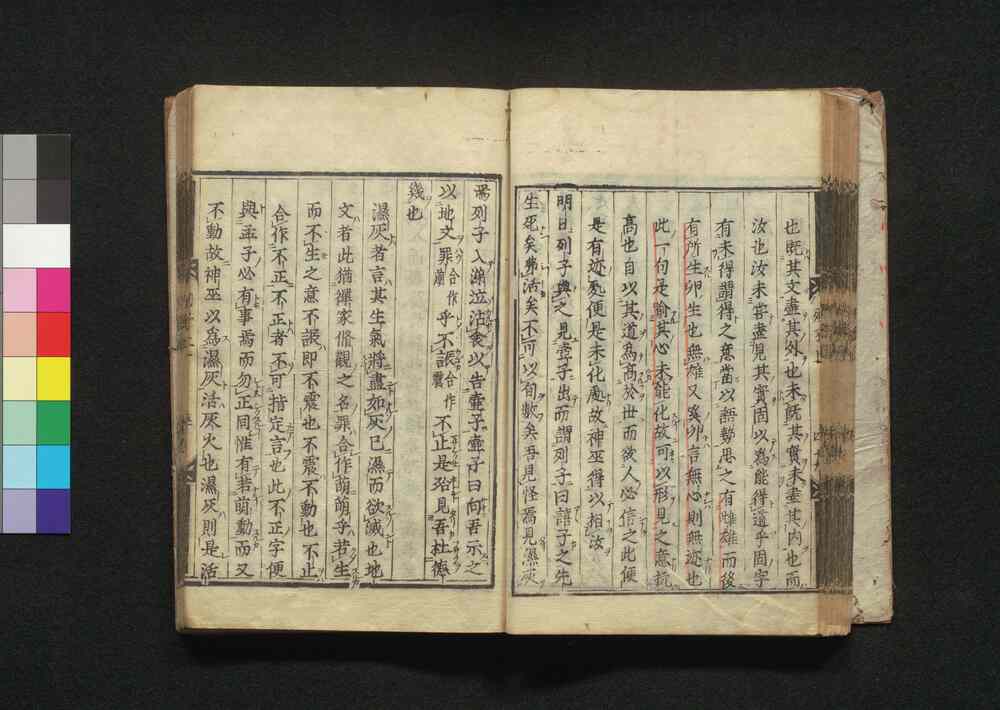 也既其文盡其外也未既其實未盡其内也而
汝也汝未甞盡見其實固以為能得道乎固字
有未得謂得之意當以語勢思之有雌雄而後
有所生卵生也無雄又奚卵言無心則無迹也
此一句是喻其心未能化故可以形見之意抗
高也自以其道為高於世而欲人必信之此便
是有迹處便是未化處故神巫得以相汝
明日列子與之見壺子出而謂列子曰譆子之先
生死矣弗活矣不可以旬數矣吾見怪焉見濕灰
焉列子入涕泣沾衾以告壺子壺子曰向吾示之
以地文罪合作萌乎不誫合作震不正是殆見吾杜德
幾也
濕灰者言其生氣將盡如灰已濕而欲滅也地
文者此猶禪家修觀之名罪合作萌萌乎若生
而不生之意不誫即不震也不震不動也不止
合作不正不正者不可指定言也此不正字便
與孟子必有事焉而勿正同惟有若萌動而又
不動故神巫以為濕灰活灰火也濕灰則是活